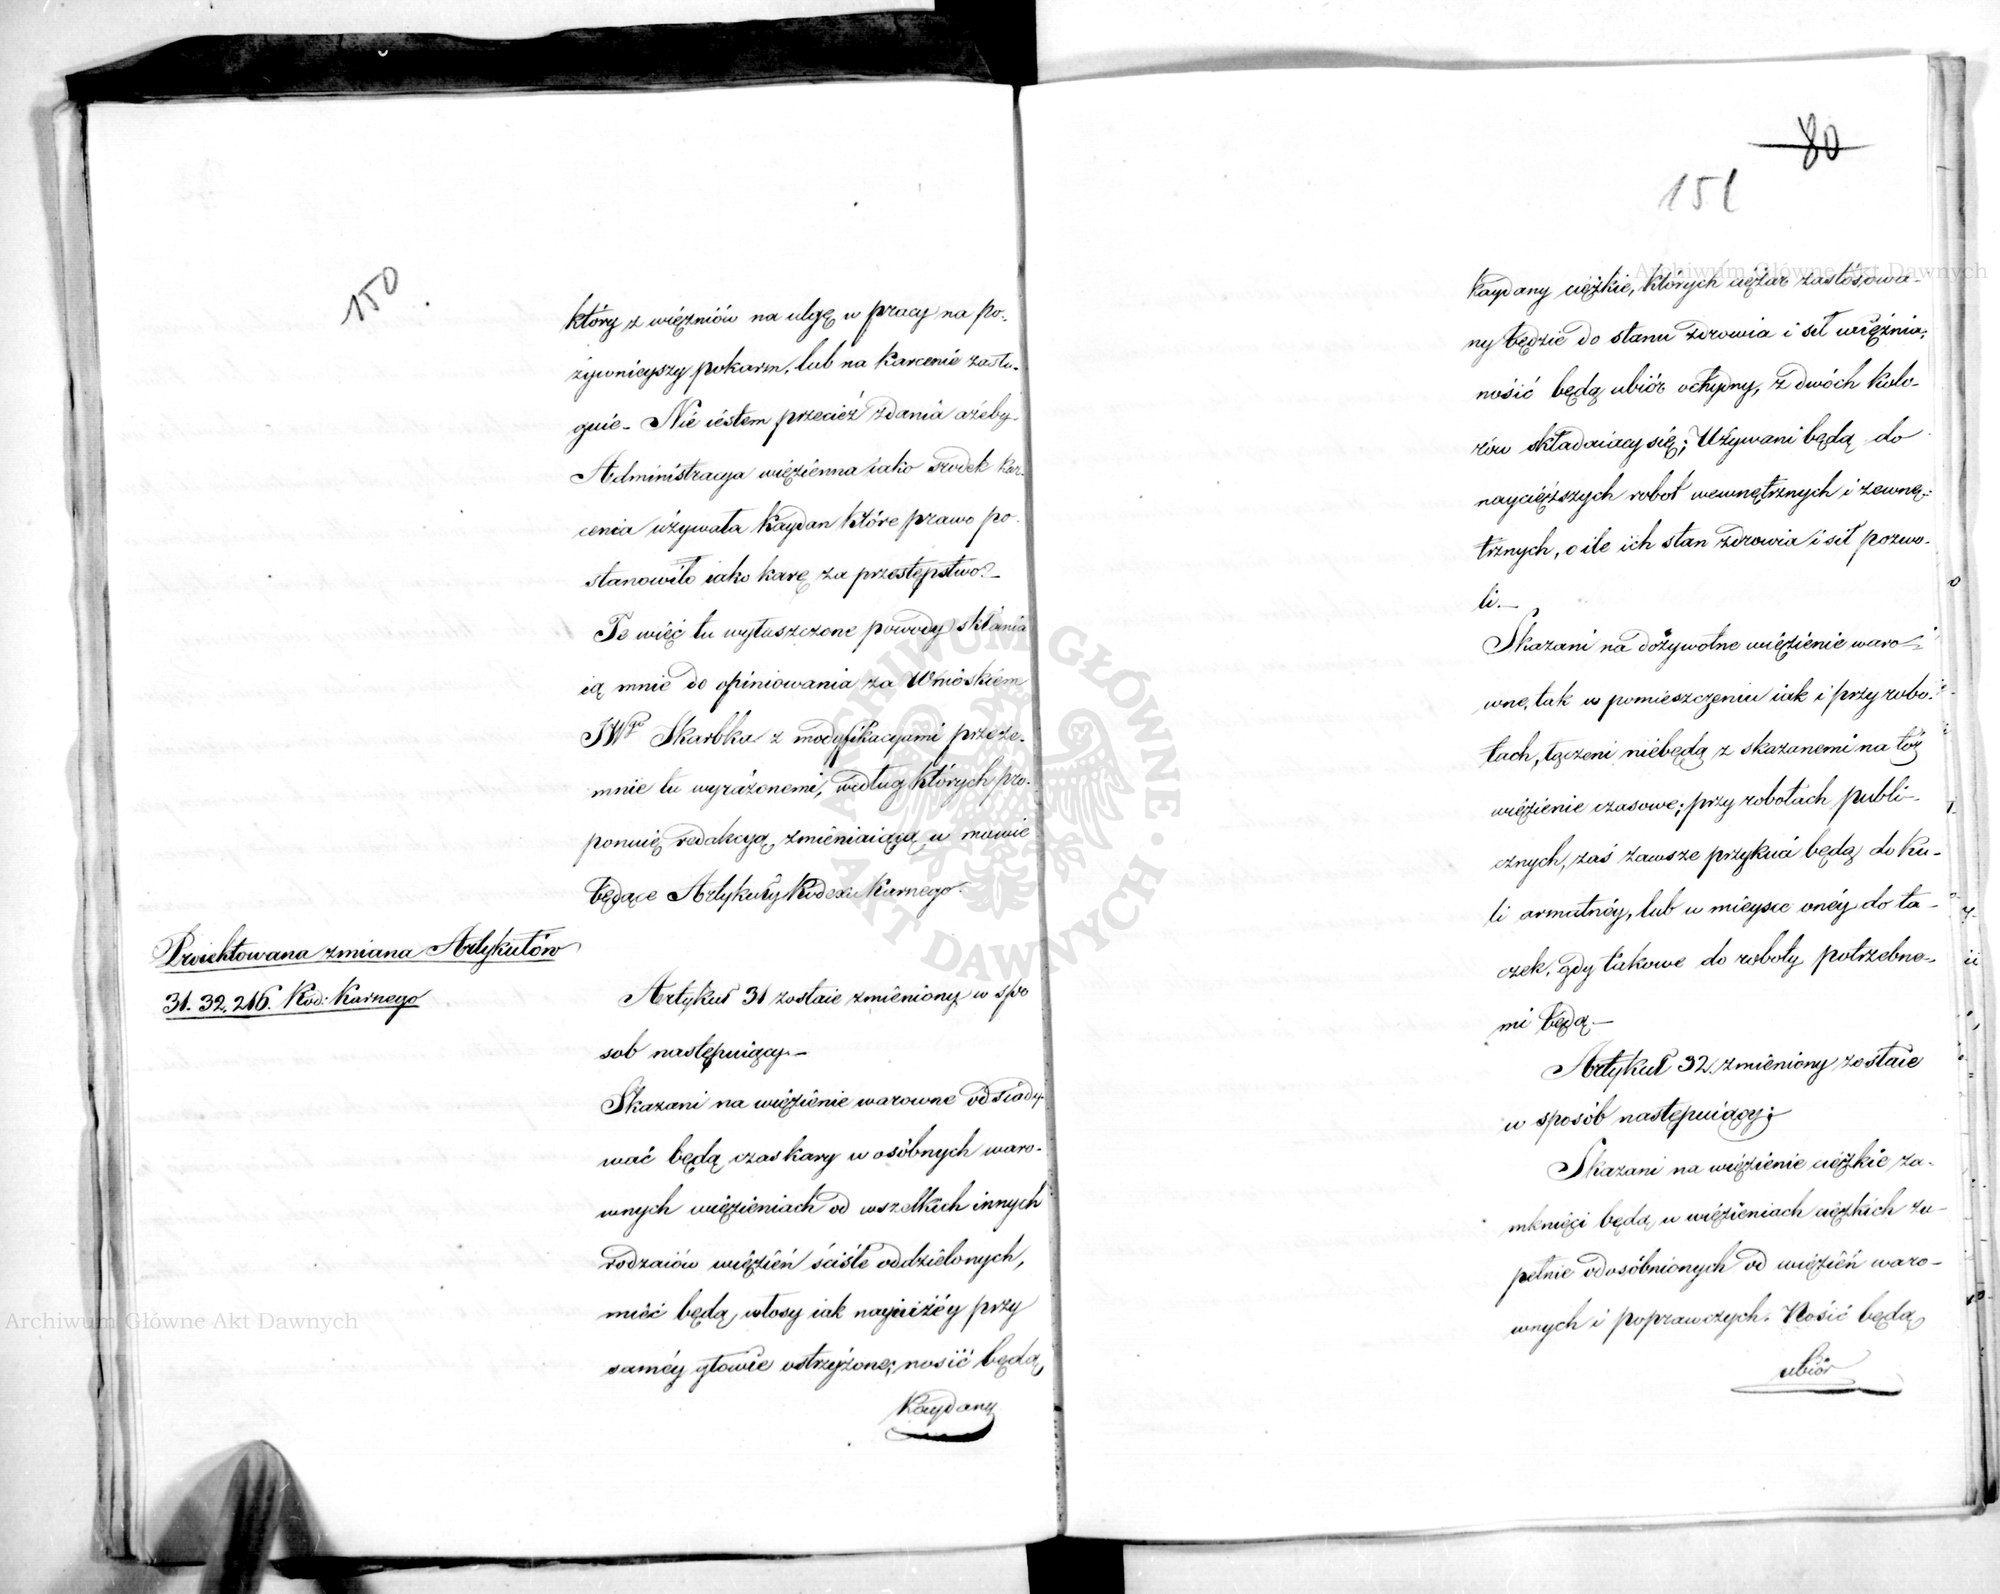 150
który z więzniów na ulgę w pracy na po-
żywnieyszy pokarm, lub na karcenie zasłu-
guie – Nie iestem przecież zdania ażeby
Administracya więzienna iako srodek kar-
cenia używała kaydan które prawo po-
stanowiło iako karę za przestępstwo. –
Te więc tu wyłuszczone powody skłania-
ią mnie do opiniowania za Wnioskiem
JWgo Skarbka z modyfikacyami przeze-
mnie tu wyrażonemi, według których pro-
ponuię redakcyą zmieniaiącą w mowie
będące Artykuły Kodexu Karnego.
Proiektowana zmiana Artykułów
31. 32. 216. Kod: Karnego
Artykuł 31 zostaie zmieniony w spo
sob następuiący. –
Skazani na więzienie warowne odsiady-
wać będą czas kary w osóbnych waro-
wnych więzieniach od wszelkich innych
rodzaiów więzień ściśle oddzielonych,
mieć będą włosy iak nayniżéy przy
saméy głowie ostrzyżone; nosić będą
Kaydany
80
151
Kaydany ciężkie, których ciężar zastósowa-
ny będzie do stanu zdrowia i sił więźnia;
nosić będą ubiór ochydny, z dwóch kolo-
rów składaiący się; Używani będą do
naycięższych robot wewnętrznych i zewnę-
trznych, o ile ich stan zdrowia i sił pozwo-
li. –
Skazani na dożywotne więzienie waro-
wne, tak w pomieszczeniu iak i przy robo-
tach, łączeni niebędą z skazanemi na toż
więzienie czasowe; przy robotach publi-
cznych, zaś zawsze przykuci będą do ku-
li armatnéy, lub w mieysce onéy do ta-
czek, gdy takowe do roboty potrzebne-
mi będą. –
Artykuł 32. zmieniony zostaie
w sposób następuiący:
Skazani na więzienie ciężkie za-
mknięci będą w więzieniach ciężkich zu-
pełnie odosóbnionych od więzień waro-
wnych i poprawczych. Nosić będą
ubiór